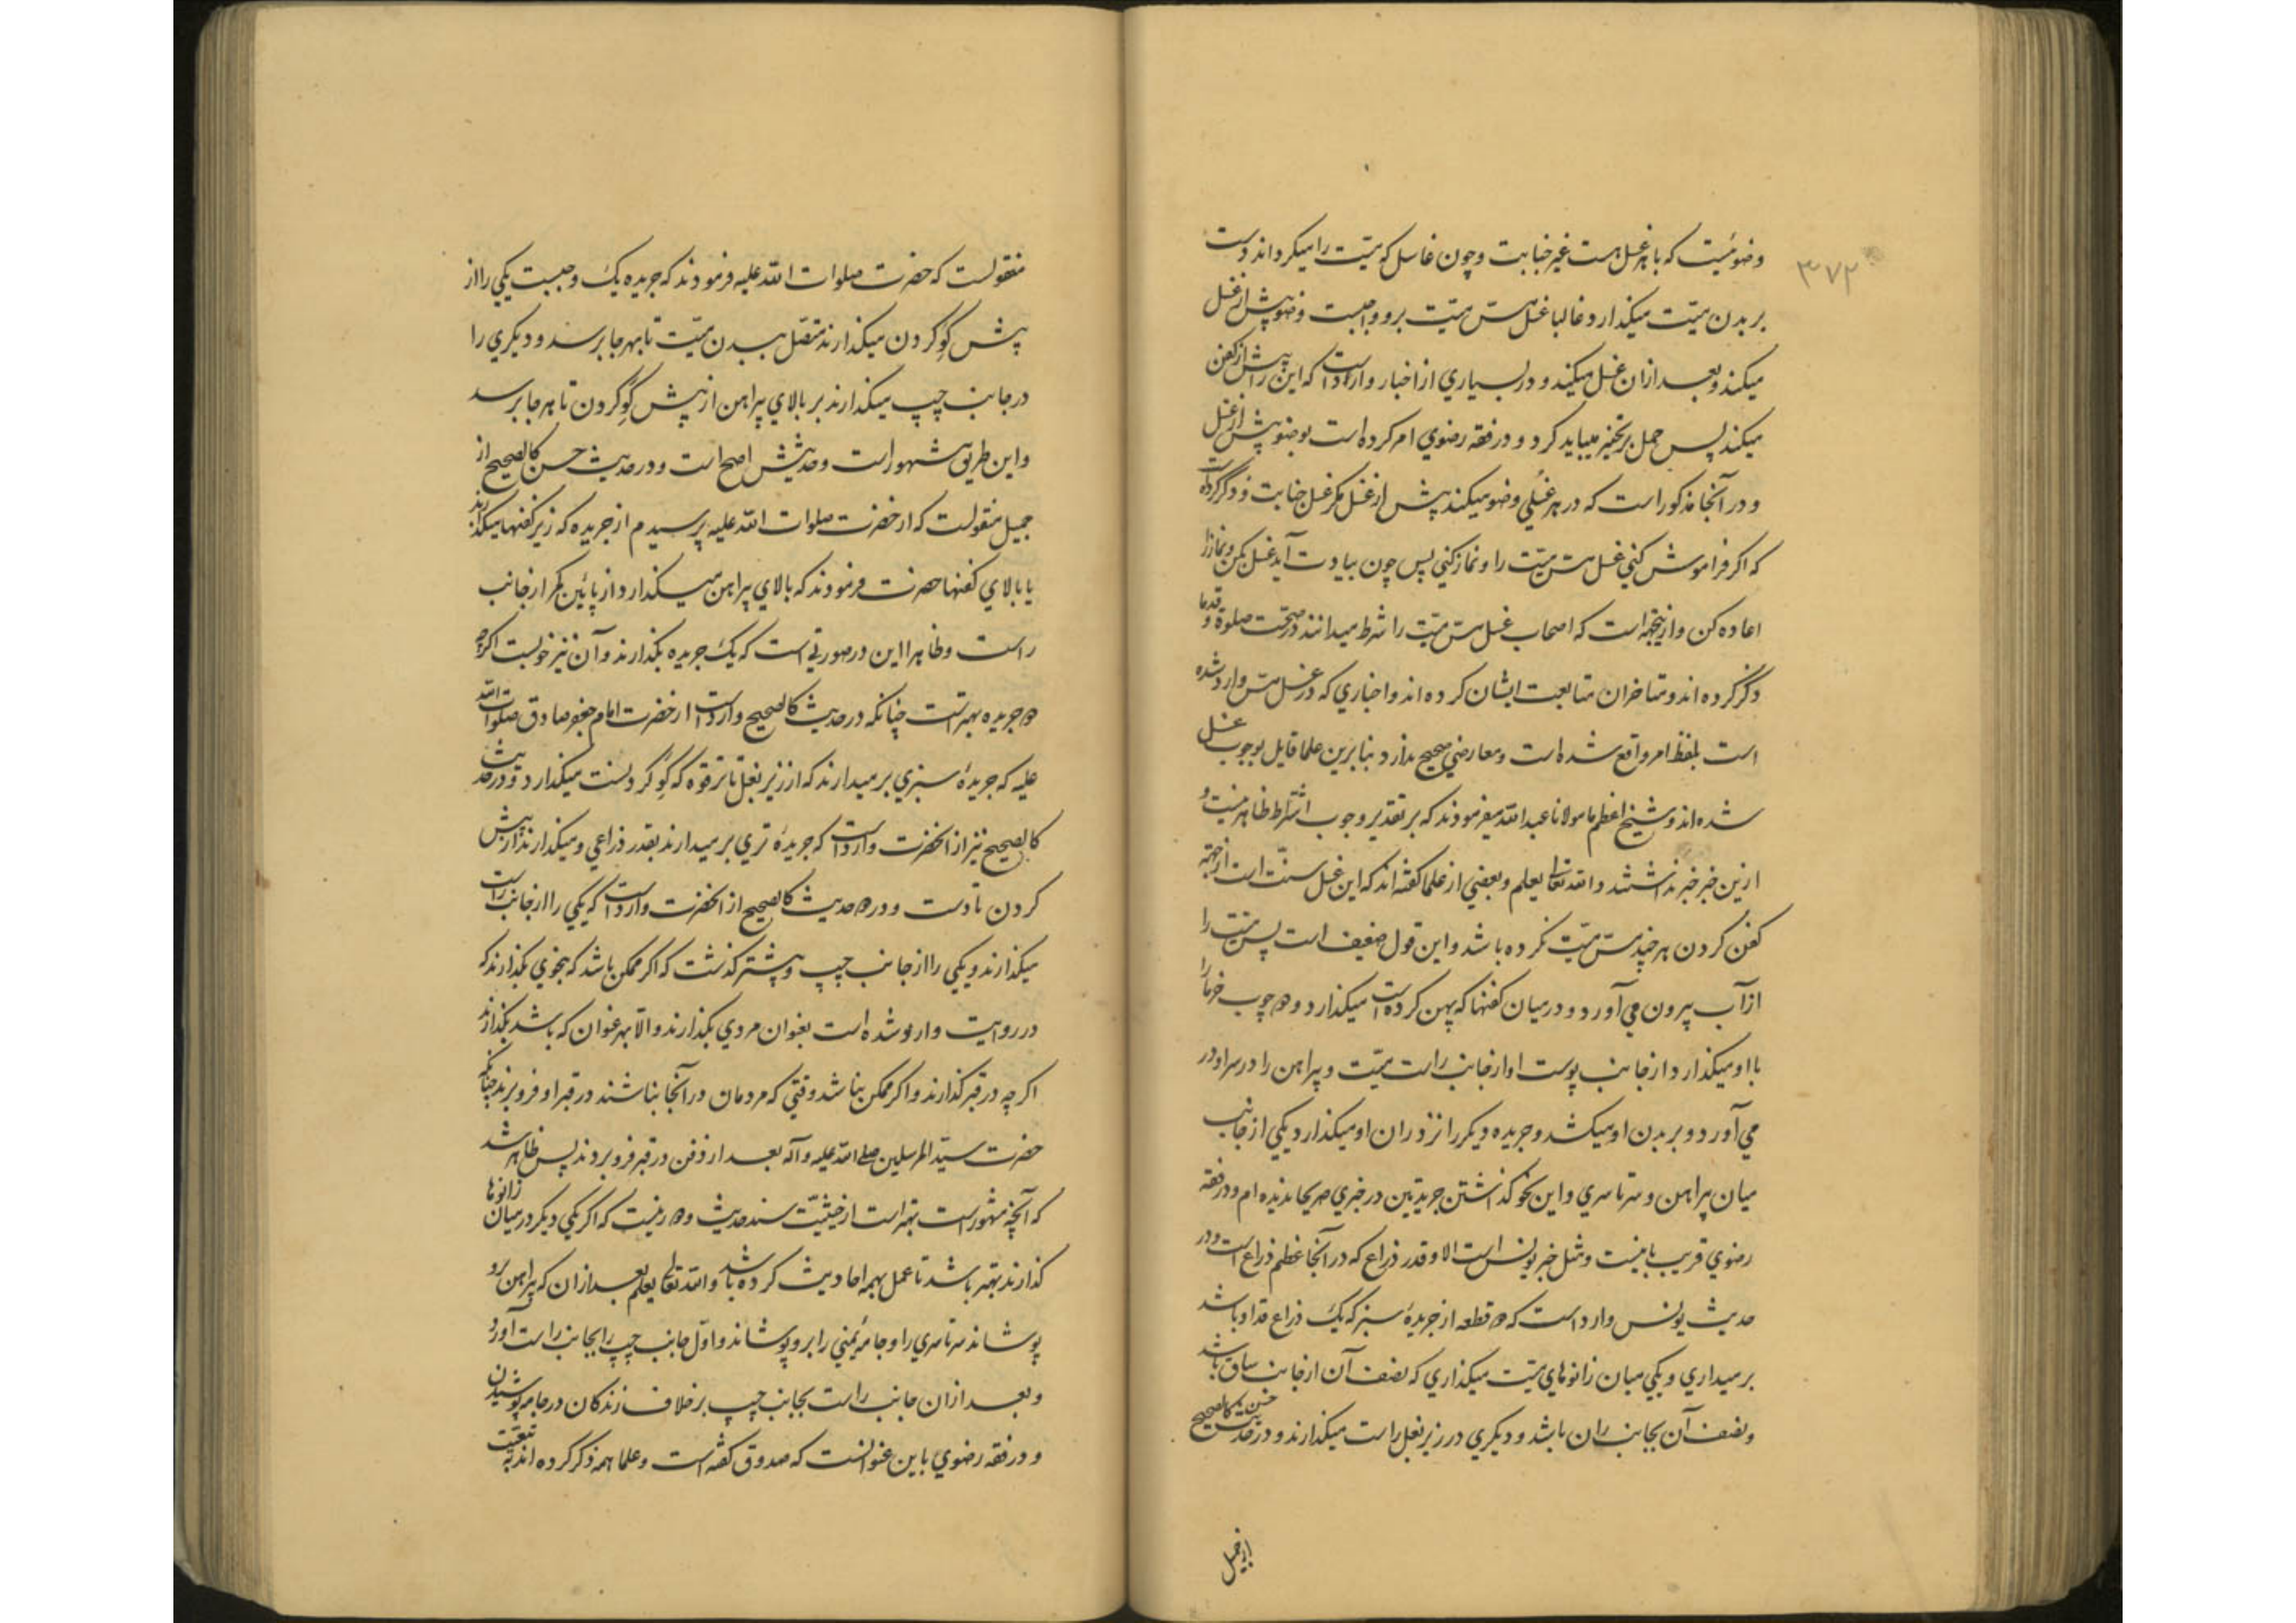 ۳۷۲
وضوئیست که با هر غسل هست غیر جنابت و چون غاسل که میت را میگرداند دست
بر بدن میّت میگذارد و غالبا غسل مسّ میّت برو واجبست وضو پیش از غسل
میکند و بعد ازان غسل میکند و در بسیاری از اخبار وارد است که این را پیش از کفن
میکند پس حمل بر تخییر میباید کرد و در فقه رضوی امر کرده است بوضو پیش از غسل
و در آنجا مذکور است که در هر غسلی وضو میکند پیش از غسل مگر غسل جنابت و ذکر کرده است
که اکر فراموش کنی غسل مسّ میّت را و نماز کنی پس چون بیادت آید غسل بکن و نماز را
اعاده کن و ازینجهه است که اصحاب غسل مسّ میّت را شرط میدانند در صحّت صلوة و قدما
ذکر کرده اند و متاخران متابعت ایشان کرده اند و اخباری که در غسل مسّ وارد شده
است بلفظ امر واقع شده است و معارضی صحیح ندارد بنابرین علما قایل بوجوب غسل
شده اند و شیخ اعظم ما مولانا عبد الله میفرمودند که بر تقدیر وجوب اشتراط ظاهر نیست و
ازین خبر خبر نداشتند و الله تعالی یعلم و بعضی از علما کفته اند که این غسل سنّت است از جهة
کفن کردن هر چند مسّ میّت نکرده باشد و این قول ضعیف است پس میّت را
از آب بیرون می آورد و در میان کفنها که پهن کرده است میگذارد و دو چوب خرما را
با او میگذارد از جانب پوست او از جانب راست میّت و پیراهن را در سر او در
می آورد و بر بدن او میکشد و جریده دیکر را نزد ران او میگذارد یکی از جانب
میان پیراهن و سرتاسری و این نحو گذاشتن جریدتین در خبری صریحا ندیده ام و در فقه
رضوی قریب باینست و مثل خبر یونس است الا و قدر ذراع که در آنجا عظم ذراع است و در
حدیث یونس وارد است که دو قطعه از جریدهٔ سبز که یک ذراع قد او باشد
برمیداری و یکی میان زانوهای میّت میگذاری که نصف آن از جانب ساق باشد
و نصف آن بجانب ران باشد و دیکری در زیر بغل راست میگذارند و در حدیث حسن کالصحیح
از جمیل
منقولست که حضرت صلوات الله علیه فرمودند که جریده یک وجبست یکی را از
پیش گو گردن میگذارند متصل ببدن میّت تا بهر جا برسد و دیکری را
در جانب چپ میگذارند بر بالای پیراهن از پیش گو گردن تا هر جا برسد
و این طریق مشهور است و حدیثش اصح است و در حدیث حسن کالصحیح از
جمیل منقولست که از حضرت صلوات الله علیه پرسیدم از جریده که زیر کفنها میگذارند
یا بالای کفنها حضرت فرمودند که بالای پیراهن میگذارد از پائین کمر از جانب
راست و ظاهرا این در صورتی است که یک جریده بگذارند و آن نیز خوبست اکرچه
دو جریده بهتر است چنانکه در حدیث کالصحیح وارد است از حضرت امام جعفر صادق صلوات الله
علیه که جریدهٔ سبزی برمیدارند که از زیر بغل تا ترقوه که گو گردنست میگذارد و در حدیث
کالصحیح نیز از آنحضرت وارد است که جریدهٔ تری برمیدارند بقدر ذراعی و میگذارند از پیش
کردن تا دست و در دو حدیث کالصحیح از آنحضرت وارد است که یکی را از جانب راست
میگذارند و یکی را از جانب چپ و پیشتر گذشت که اکر ممکن باشد که بنحوی بگذارند که
در روایت وارد شده است بعنوان مروی بگذارند و الّا بهر عنوان که باشد بگذارند
اکر چه در قبر گذارند و اکر ممکن نباشد وقتی که مردمان در آنجا نباشند در قبر او فرو برند چنانکه
حضرت سیّد المرسلین صلی الله علیه و آله بعد از دفن در قبر فرو بردند پس ظاهر شد
که آنچه مشهور است بهتر است از حیثیّت سند حدیث و دور نیست که اکر یکی دیکر در میان زانوها
گذارند بهتر باشد تا عمل بهمه احادیث کرده باشد و الله تعالی یعلم بعد ازان که پیراهن برو
پوشاند سرتاسری را و جامهٔ یمنی را برو پوشاند و اوّل جانب چپ را بجانب راست آورد
و بعد ازان جانب راست بجانب چپ بر خلاف زندکان در جامه پوشیدن
و در فقه رضوی باین عنوانست که صدوق کفته است و علما همه ذکر کرده اند به تبعیّت